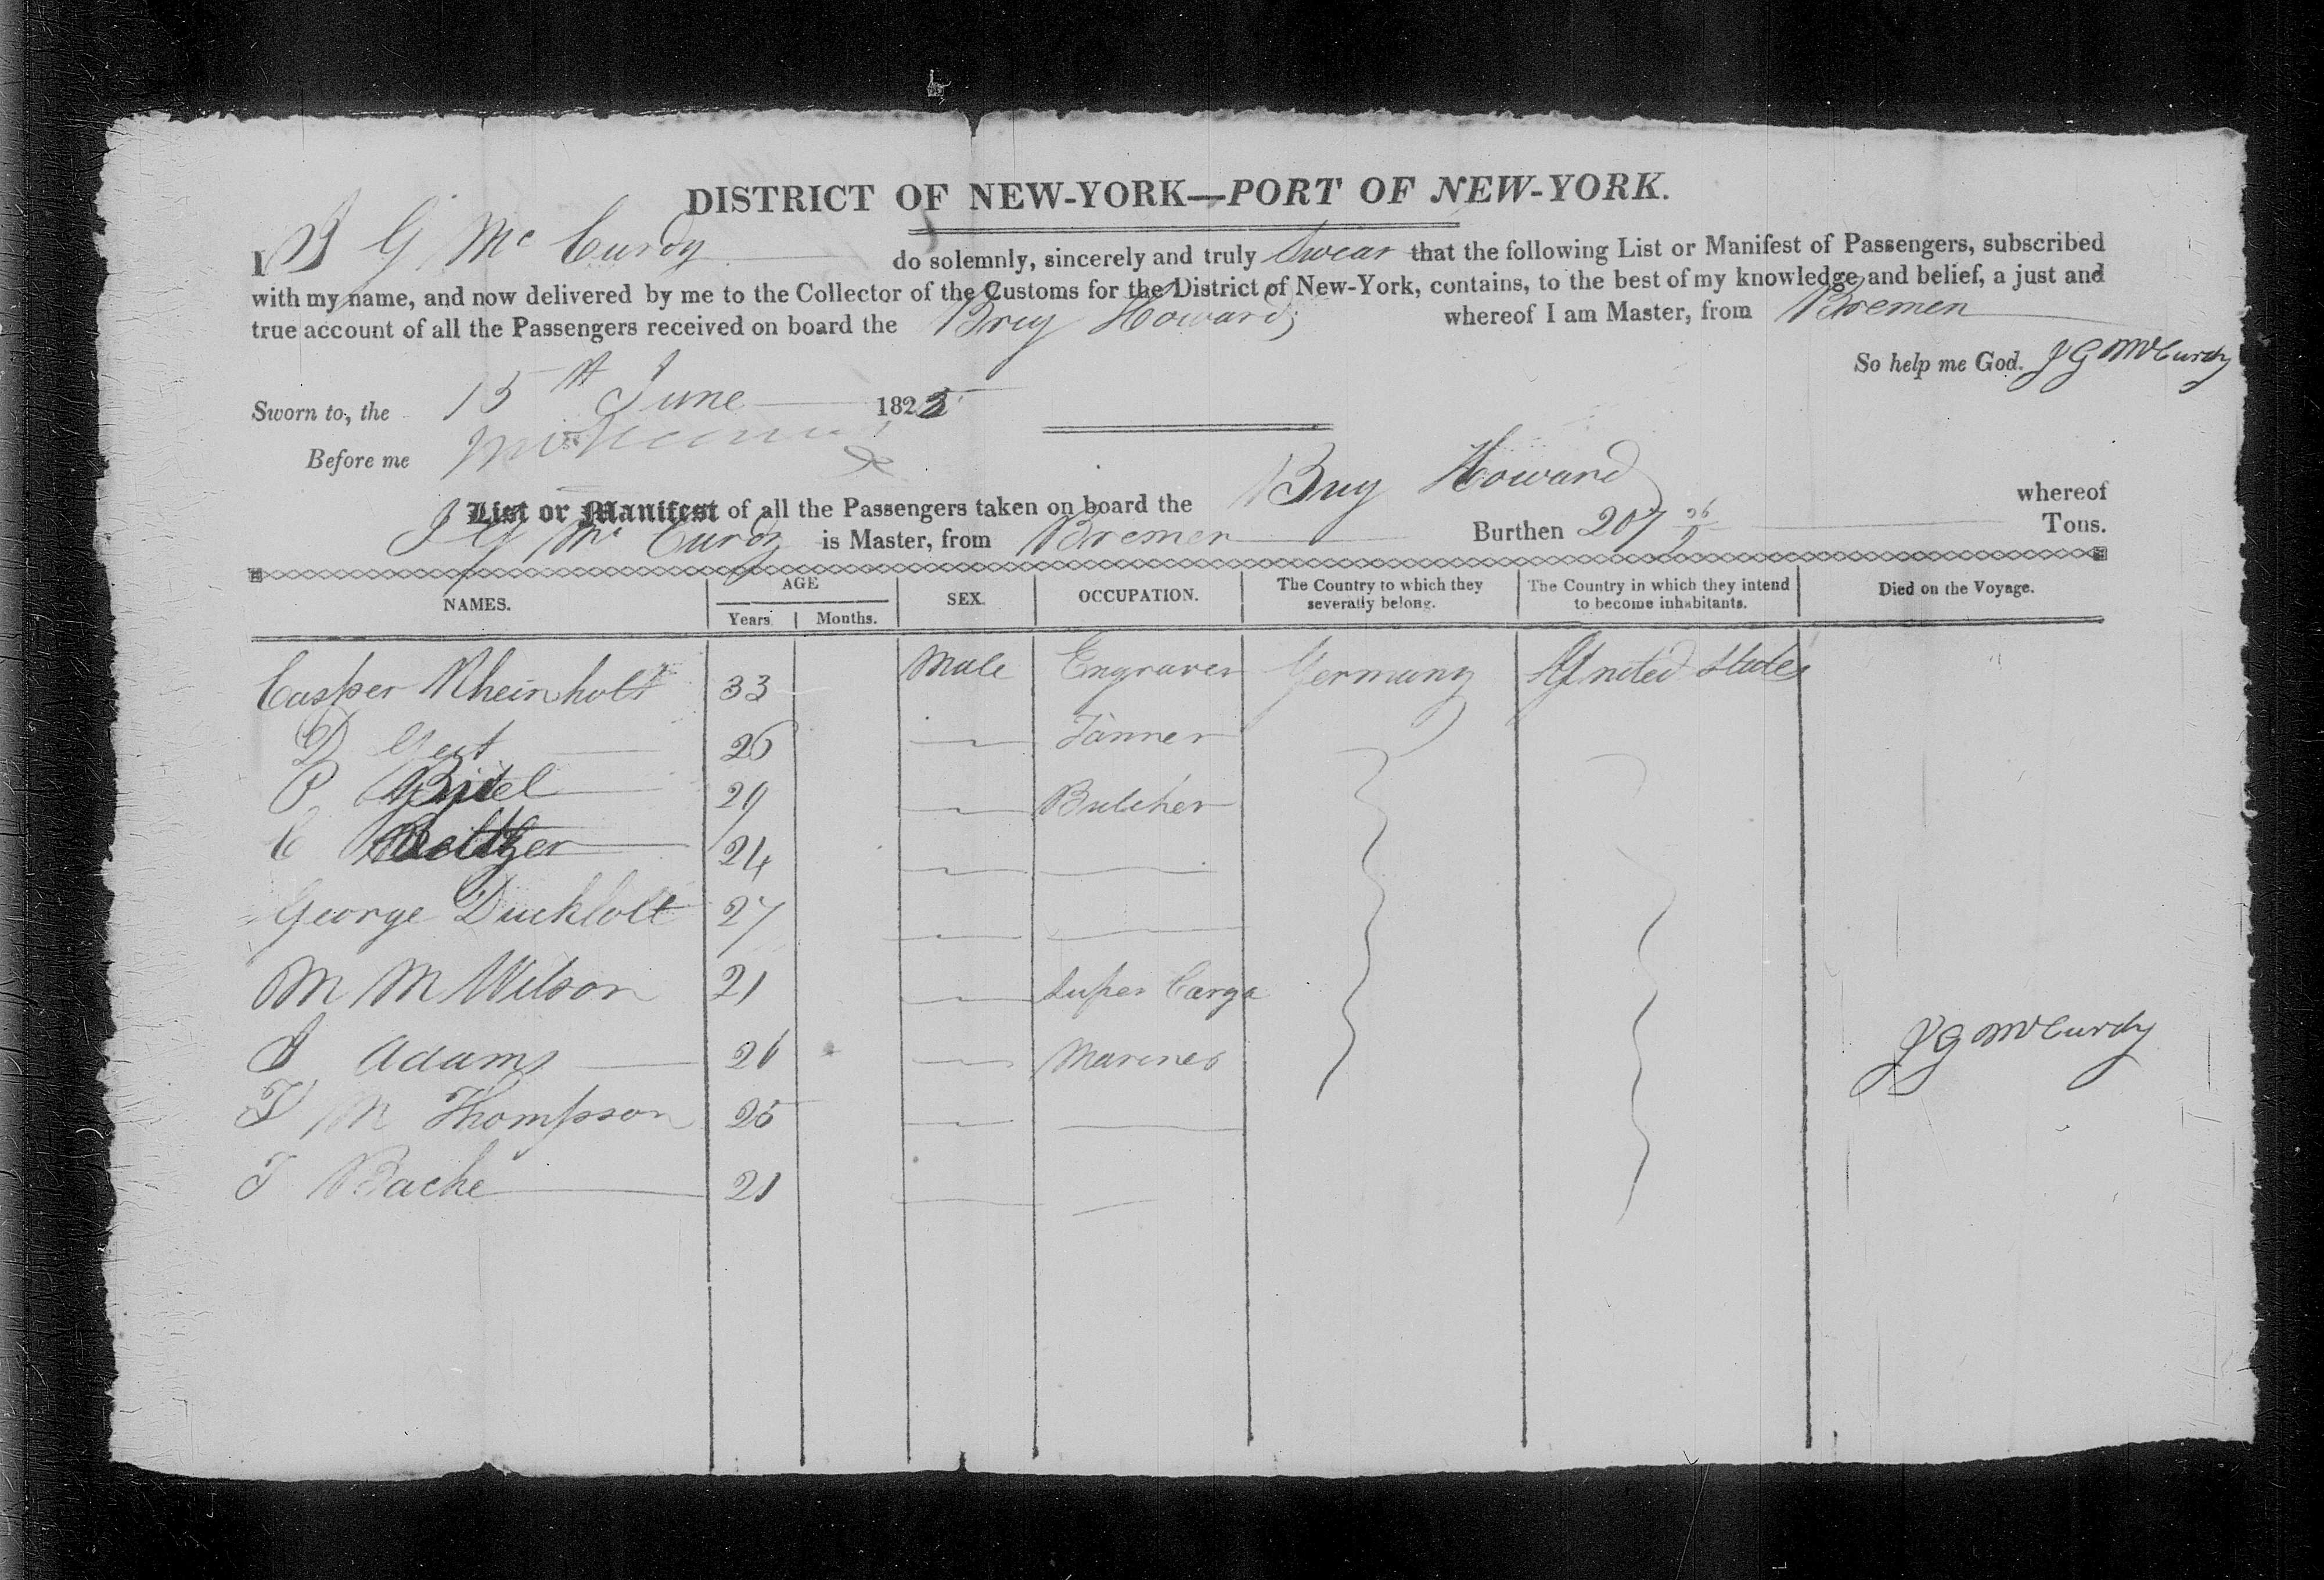 DISTRICT OF NEW-YORK—PORT OF NEW-YORK.
I J G McCurdy do solemnly, sincerely and truly Swear that the following List or Manifest of Passengers, subscribed
with my name, and now delivered by me to the Collector of the Customs for the District of New-York, contains, to the best of my knowledge and belief, a just and
true account of all the Passengers received on board the Brig Howard, whereof I am Master, from Bremen
So help me God. J G McCurdy
Sworn to, the 15th June 1825
Before me
List or Manifest of all the Passengers taken on board the Brig Howard whereof
J G McCurdy is Master, from Bremen Burthen 207 Tons.
NAMES. AGE Years Months. SEX. OCCUPATION. The Country to which they severally belong. The Country in which they intend to become inhabitants. Died on the Voyage.
Casper Rheinholt 33 Male Engraver Germany United States
D 26 Tanner
P 29 Butcher
C 24
George 27
M M Wilson 21 Super Cargo
J Adams 26 Mariner
J G McCurdy
T M Thompson 25
T Bache 21